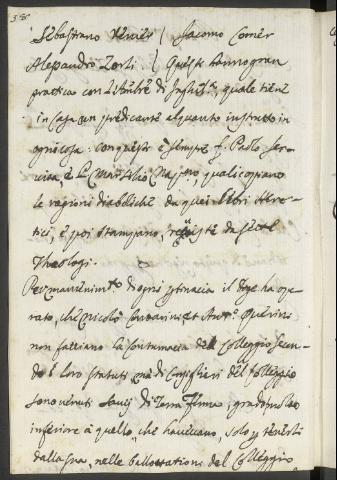 Sebastiano Venier Jacomo Corner
Alessandro Zorli Questi hanno gran
prattica con l'Amb.re di Inghil.ra quale tiene
in Casa un predicante alquanto instrutto in
ogni cosa: con questi è sempre f. Paolo Ser-
vita, è f. , quali copiano
le ragioni diaboliche da quei libri Here-
tici, è poi stampano, viste da sette
Theologi.
Per di ogni il Doge ha ope-
rato, che Nicolò Contarini et Ant.o Querini
non facciano la Contumacia del Colleggio secun-
do i loro statuti, mà di Consiglieri del Colleggio
sono venuti Savij di Terra Ferma, grado
inferiore à quello, che havevano, solo p tenerli
dalla sua, nelle ballottationi del Colleggio